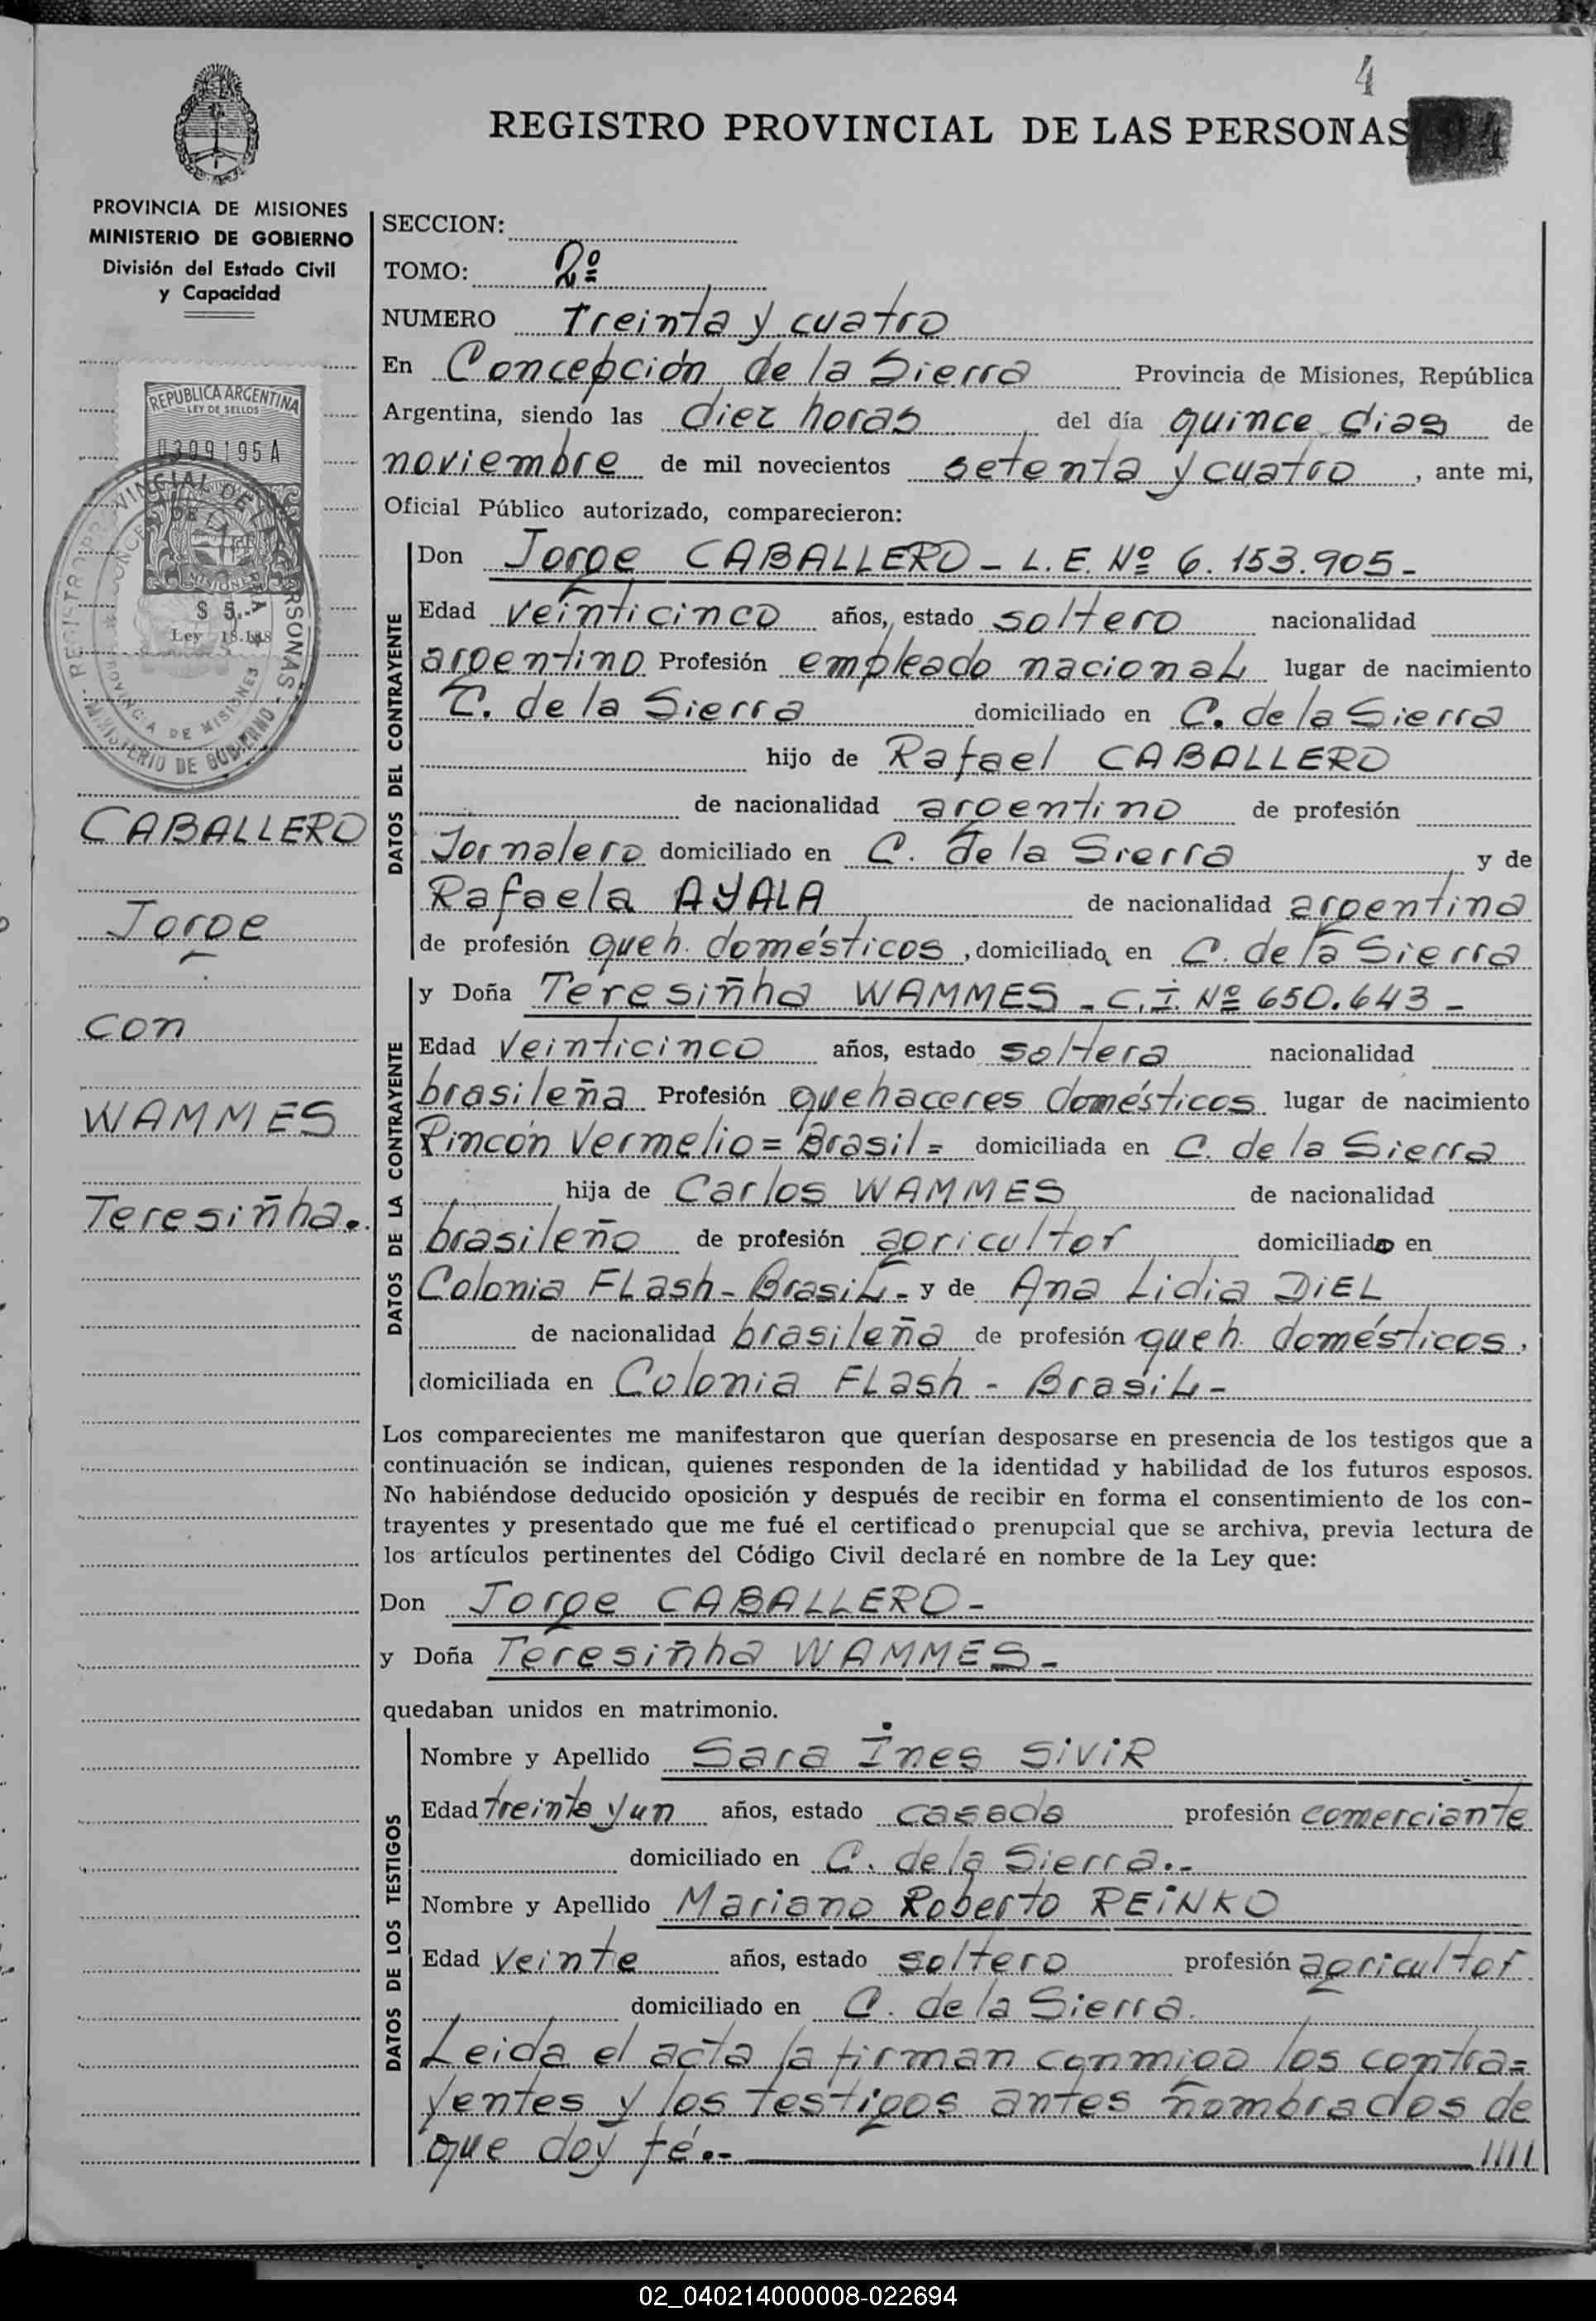 4
REGISTRO PROVINCIAL DE LAS PERSONAS
PROVINCIA DE MISIONES
MINISTERIO DE GOBIERNO
División del Estado Civil
y Capacidad
REPUBLICA ARGENTINA
LEY DE SELLOS
0309195 A
MISIONES
$ 5.-
Ley 18.188
REGISTRO PROVINCIAL DE LAS PERSONAS
PROVINCIA DE MISIONES
MINISTERIO DE GOBIERNO
CABALLERO
Jorge
con
WAMMES
Teresiñha.
SECCION:
TOMO: 2º
NUMERO Treinta y cuatro
En Concepción de la Sierra Provincia de Misiones, República
Argentina, siendo las diez horas del día quince dias de
noviembre de mil novecientos setenta y cuatro, ante mi,
Oficial Público autorizado, comparecieron:
DATOS DEL CONTRAYENTE
Don Jorge CABALLERO - L.E. Nº 6.153.905-
Edad veinticinco años, estado soltero nacionalidad
argentino Profesión empleado nacional lugar de nacimiento
C. de la Sierra domiciliado en C. de la Sierra
hijo de Rafael CABALLERO
de nacionalidad argentino de profesión
Jornalero domiciliado en C. de la Sierra y de
Rafaela AYALA de nacionalidad argentina
de profesión queh. domésticos, domiciliada en C. de la Sierra
DATOS DE LA CONTRAYENTE
y Doña Teresiñha WAMMES - C.I. Nº 650.643 -
Edad veinticinco años, estado soltera nacionalidad
brasileña Profesión quehaceres domésticos lugar de nacimiento
Rincón Vermelio = Brasil = domiciliada en C. de la Sierra
hija de Carlos WAMMES de nacionalidad
brasileño de profesión agricultor domiciliado en
Colonia FLash - BrasiL - y de Ana Lidia DiEL
de nacionalidad brasileña de profesión queh. domésticos,
domiciliada en Colonia FLash - BrasiL -
Los comparecientes me manifestaron que querían desposarse en presencia de los testigos que a
continuación se indican, quienes responden de la identidad y habilidad de los futuros esposos.
No habiéndose deducido oposición y después de recibir en forma el consentimiento de los con-
trayentes y presentado que me fué el certificado prenupcial que se archiva, previa lectura de
los artículos pertinentes del Código Civil declaré en nombre de la Ley que:
Don Jorge CABALLERO -
y Doña Teresiñha WAMMES -
quedaban unidos en matrimonio.
DATOS DE LOS TESTIGOS
Nombre y Apellido Sara Ines SiViR
Edad treinta y un años, estado casada profesión comerciante
domiciliado en C. de la Sierra.-
Nombre y Apellido Mariano Roberto REiNKO
Edad veinte años, estado soltero profesión agricultor
domiciliado en C. de la Sierra.
Leida el acta la firman conmigo los contra=
yentes y los testigos antes nombrados de
que doy fé.- ////
02_040214000008-022694